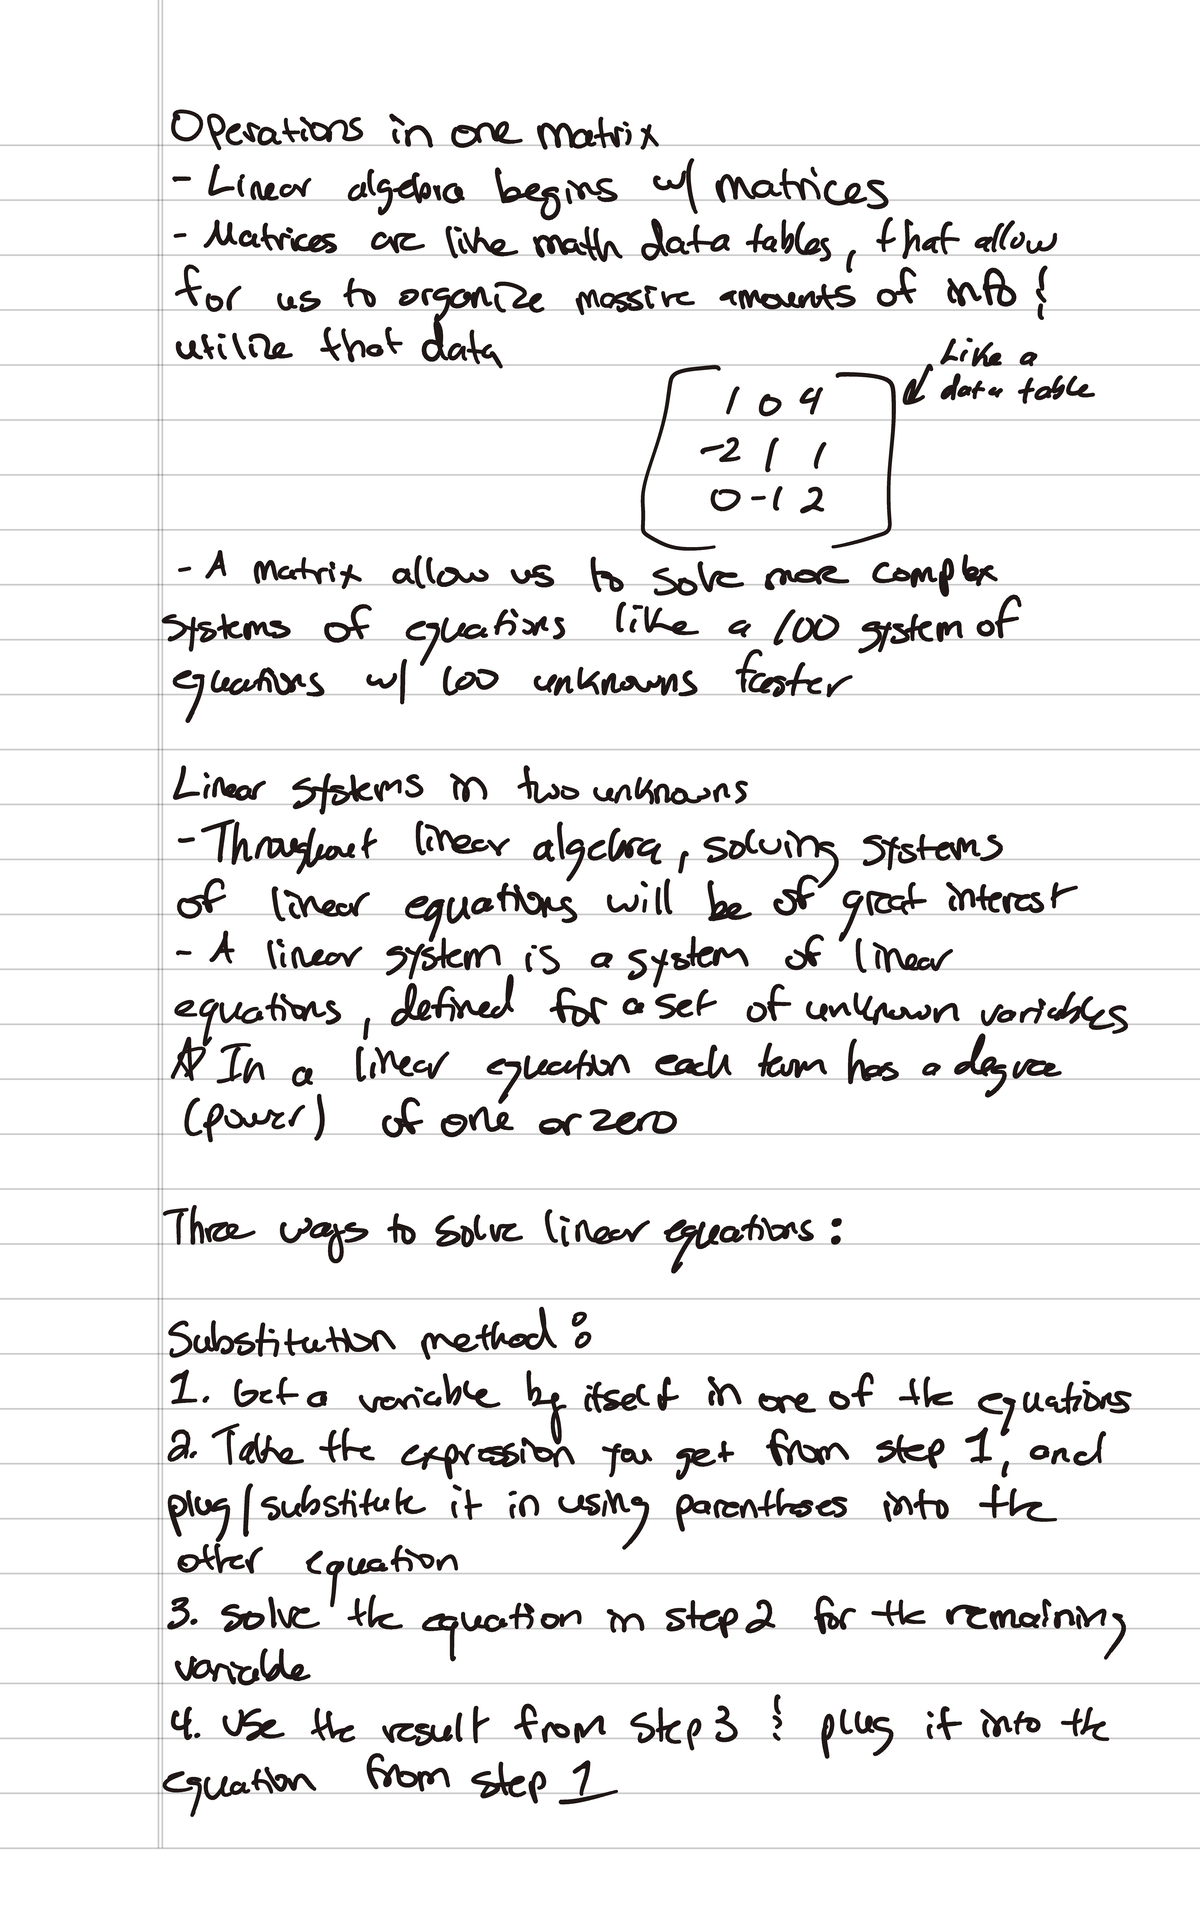 Operations in one matrix
- Linear algebra begins w/ matrices
- Matrices are like math data tables, that allow
for us to organize massive amounts of info &
utilize that data
Like a
data table
1 0 4
-2 1 1
0 -1 2
- A matrix allow us to solve more complex
systems of equations like a 100 system of
equations w/ 100 unknowns faster
Linear systems in two unknowns
- Throughout linear algebra, solving systems
of linear equations will be of great interest
- A linear system is a system of linear
equations, defined for a set of unknown variables
☆ In a linear equation each term has a degree
(power) of one or zero
Three ways to solve linear equations:
Substitution method:
1. Get a variable by itself in one of the equations
2. Take the expression you get from step 1, and
plug/substitute it in using parentheses into the
other equation
3. Solve the equation in step 2 for the remaining
variable
4. Use the result from step 3 & plug it into the
equation from step 1